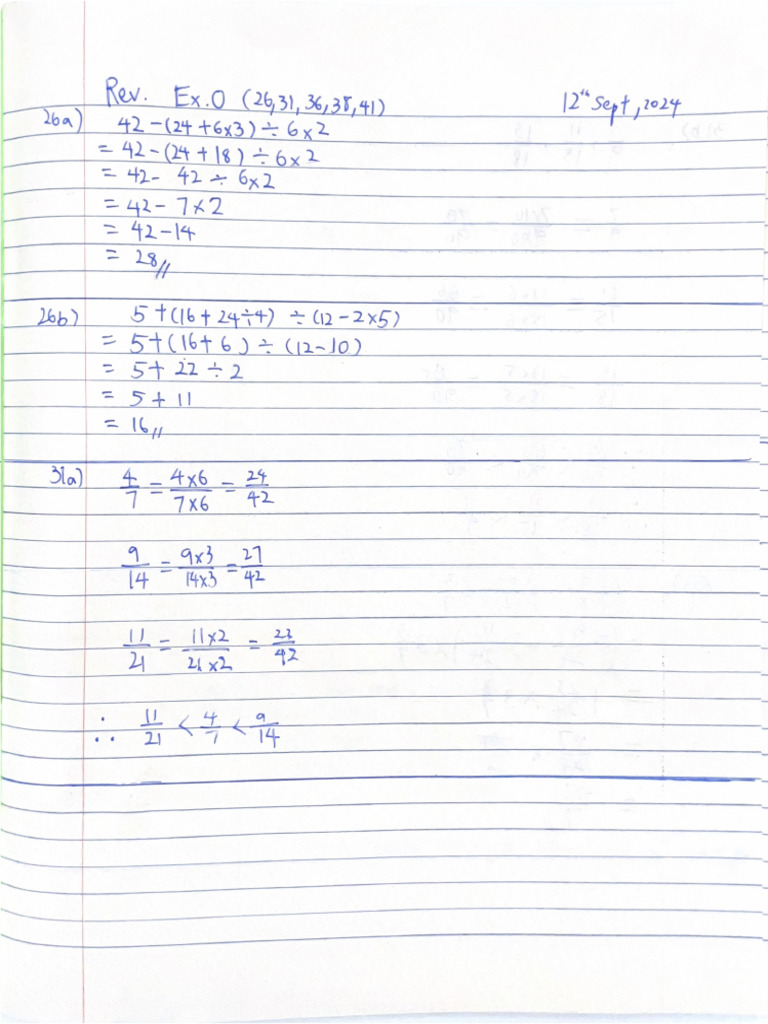 Rev. Ex.0 (26,31,36,38,41) 12th Sept, 2024
26a) 42-(24+6×3)÷6×2
= 42-(24+18)÷6×2
= 42- 42÷6×2
= 42- 7×2
= 42-14
= 28//
26b) 5+(16+24÷4) ÷(12-2×5)
= 5+(16+6)÷(12-10)
= 5+ 22÷2
= 5+11
= 16//
31a) 4/7 = 4×6/7×6 = 24/42
9/14 = 9×3/14×3 = 27/42
11/21 = 11×2/21×2 = 22/42
∴ 11/21 < 4/7 < 9/14